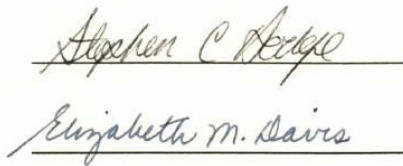 Stephen C Hedge
Elizabeth M. Davis